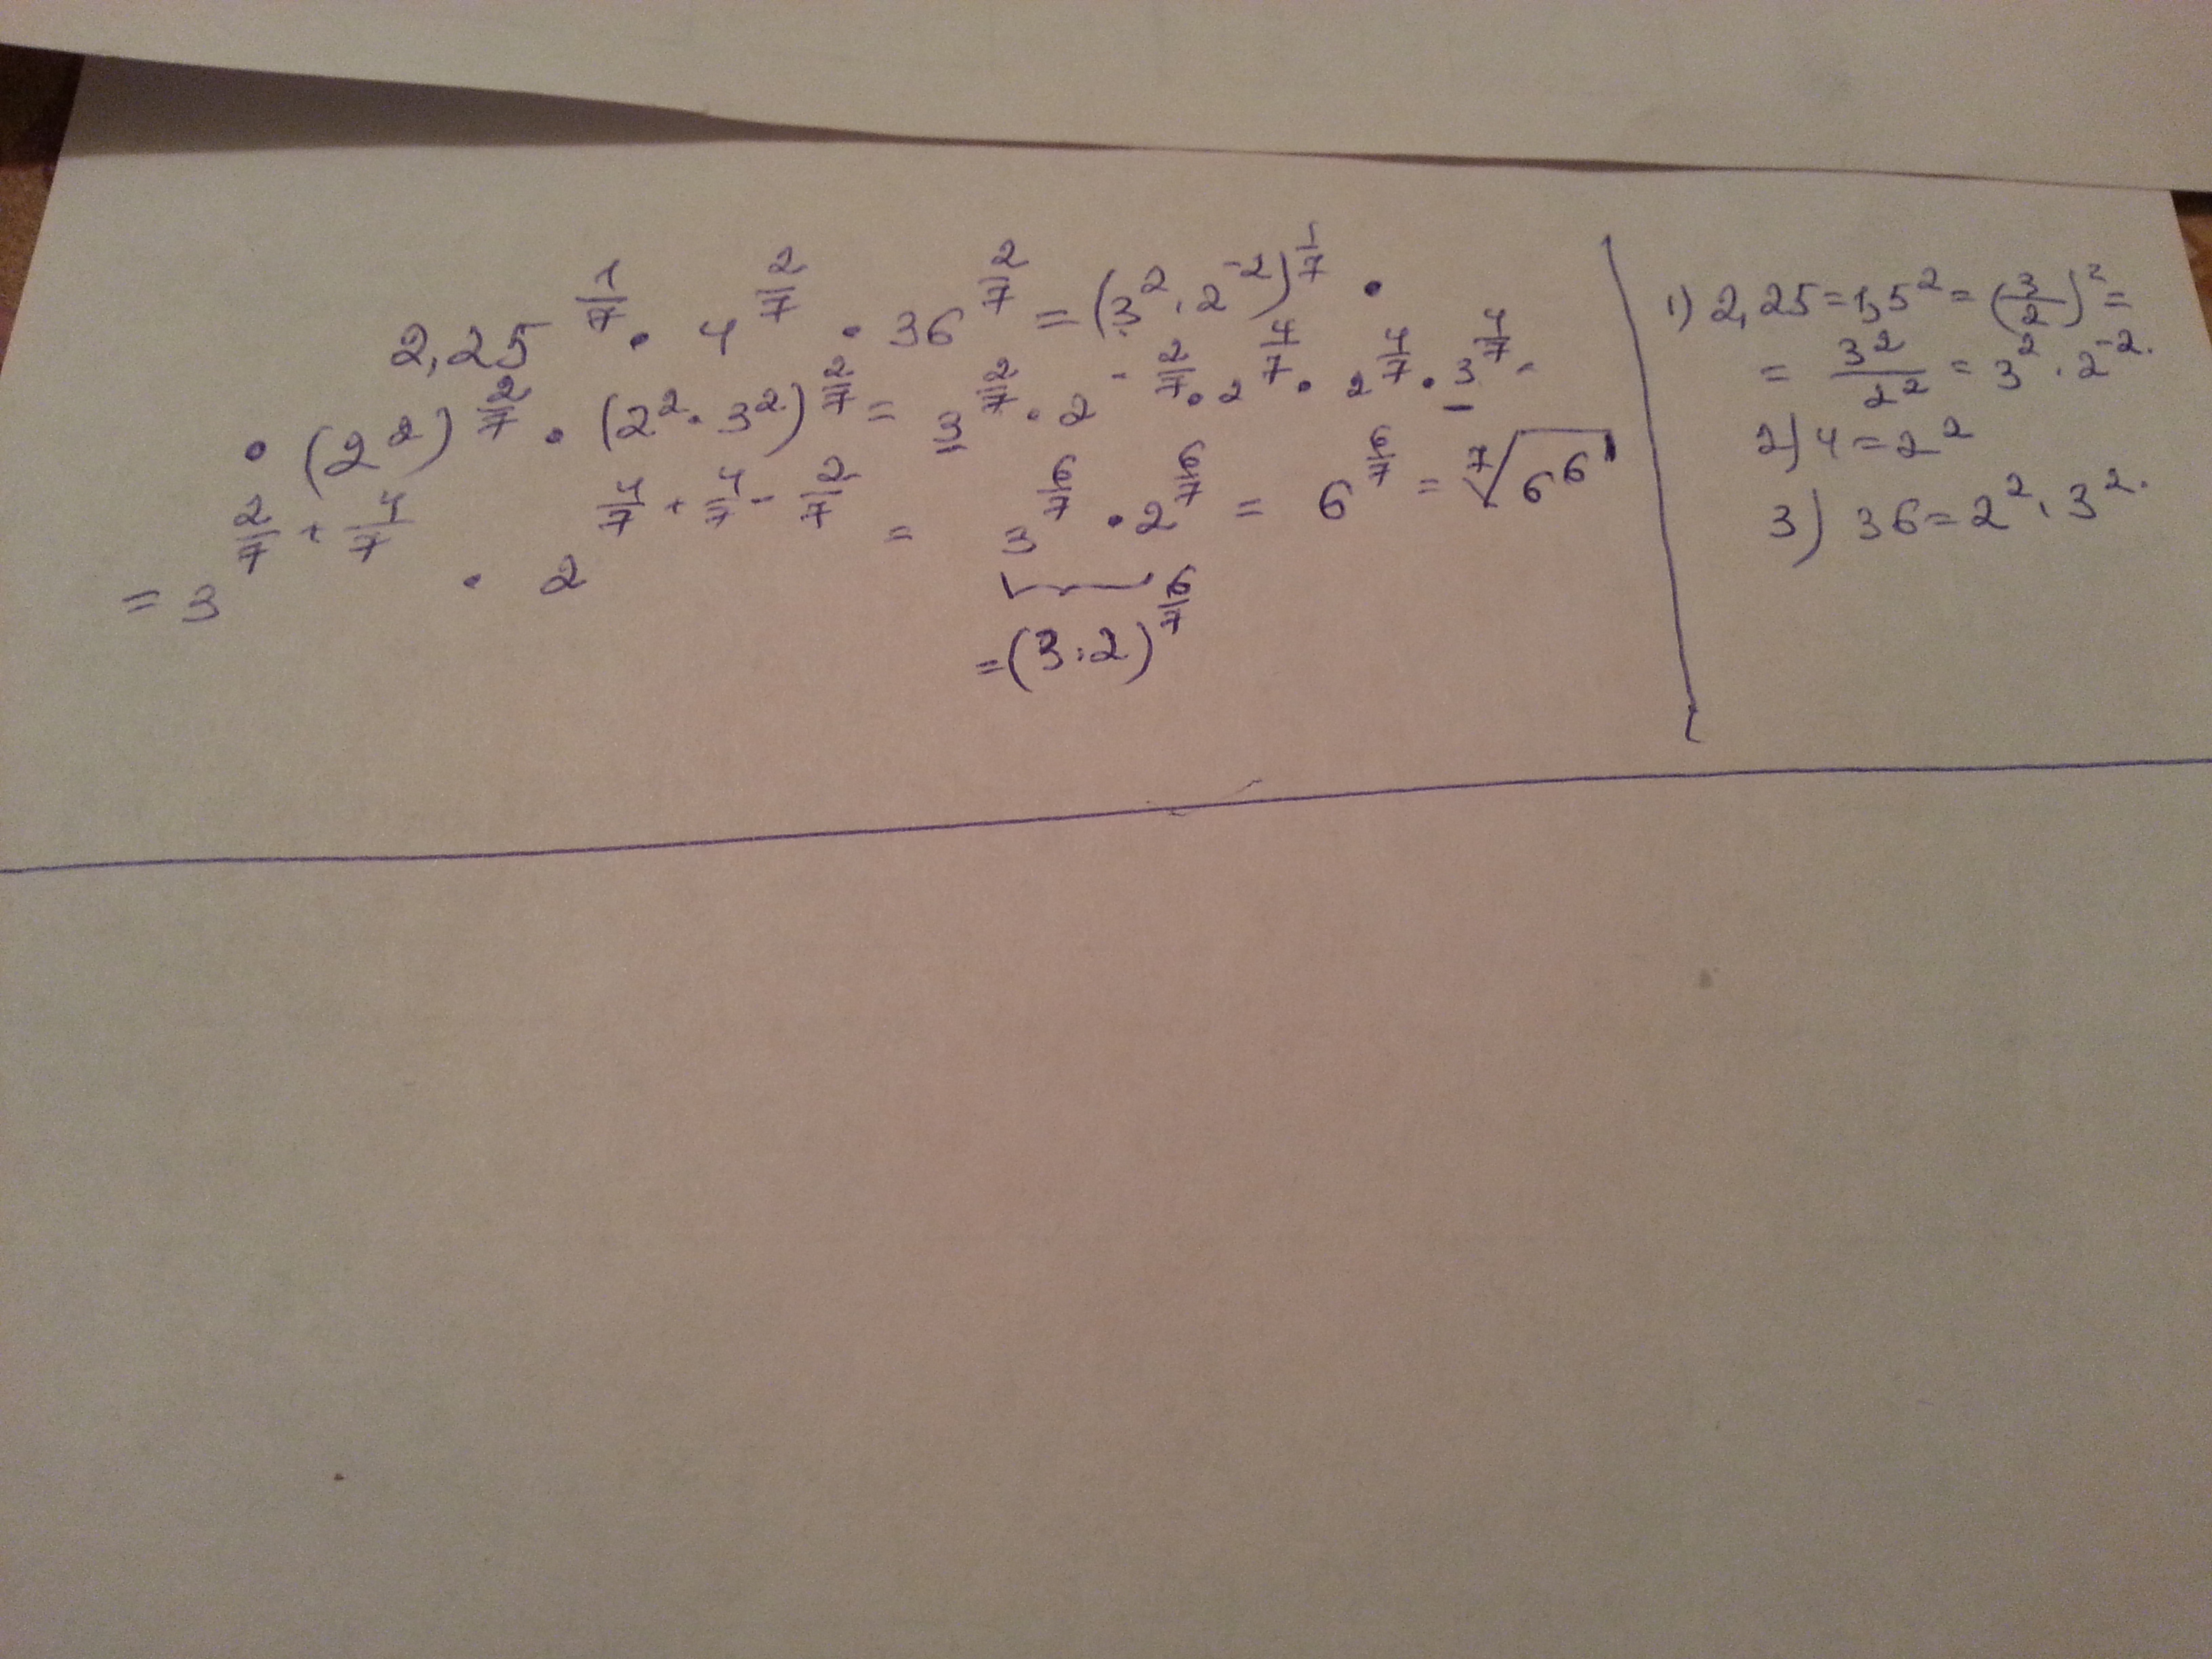 2,25^{1/7} · 4^{2/7} · 36^{2/7} = (3^2 · 2^{-2})^{1/7} ·
· (2^2)^{2/7} · (2^2 · 3^2)^{2/7} = 3^{2/7} · 2^{-2/7} · 2^{4/7} · 2^{4/7} · 3^{4/7} =
= 3^{2/7 + 4/7} · 2^{4/7 + 4/7 - 2/7} = 3^{6/7} · 2^{6/7} = 6^{6/7} = \sqrt[7]{6^6}
= (3 · 2)^{6/7}
1) 2,25 = 1,5^2 = (3/2)^2 =
= 3^2/2^2 = 3^2 · 2^{-2}.
2) 4 = 2^2
3) 36 = 2^2 · 3^2.